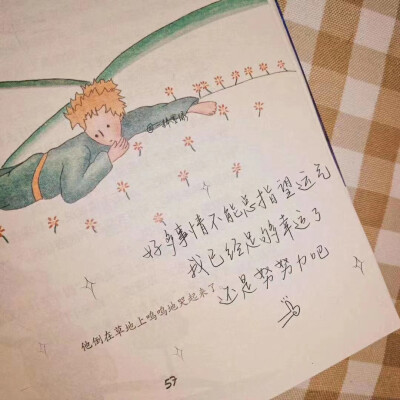 好多事情不能总指望运气
我已经足够幸运了
还是努努力吧
他倒在草地上呜呜地哭起来了
57